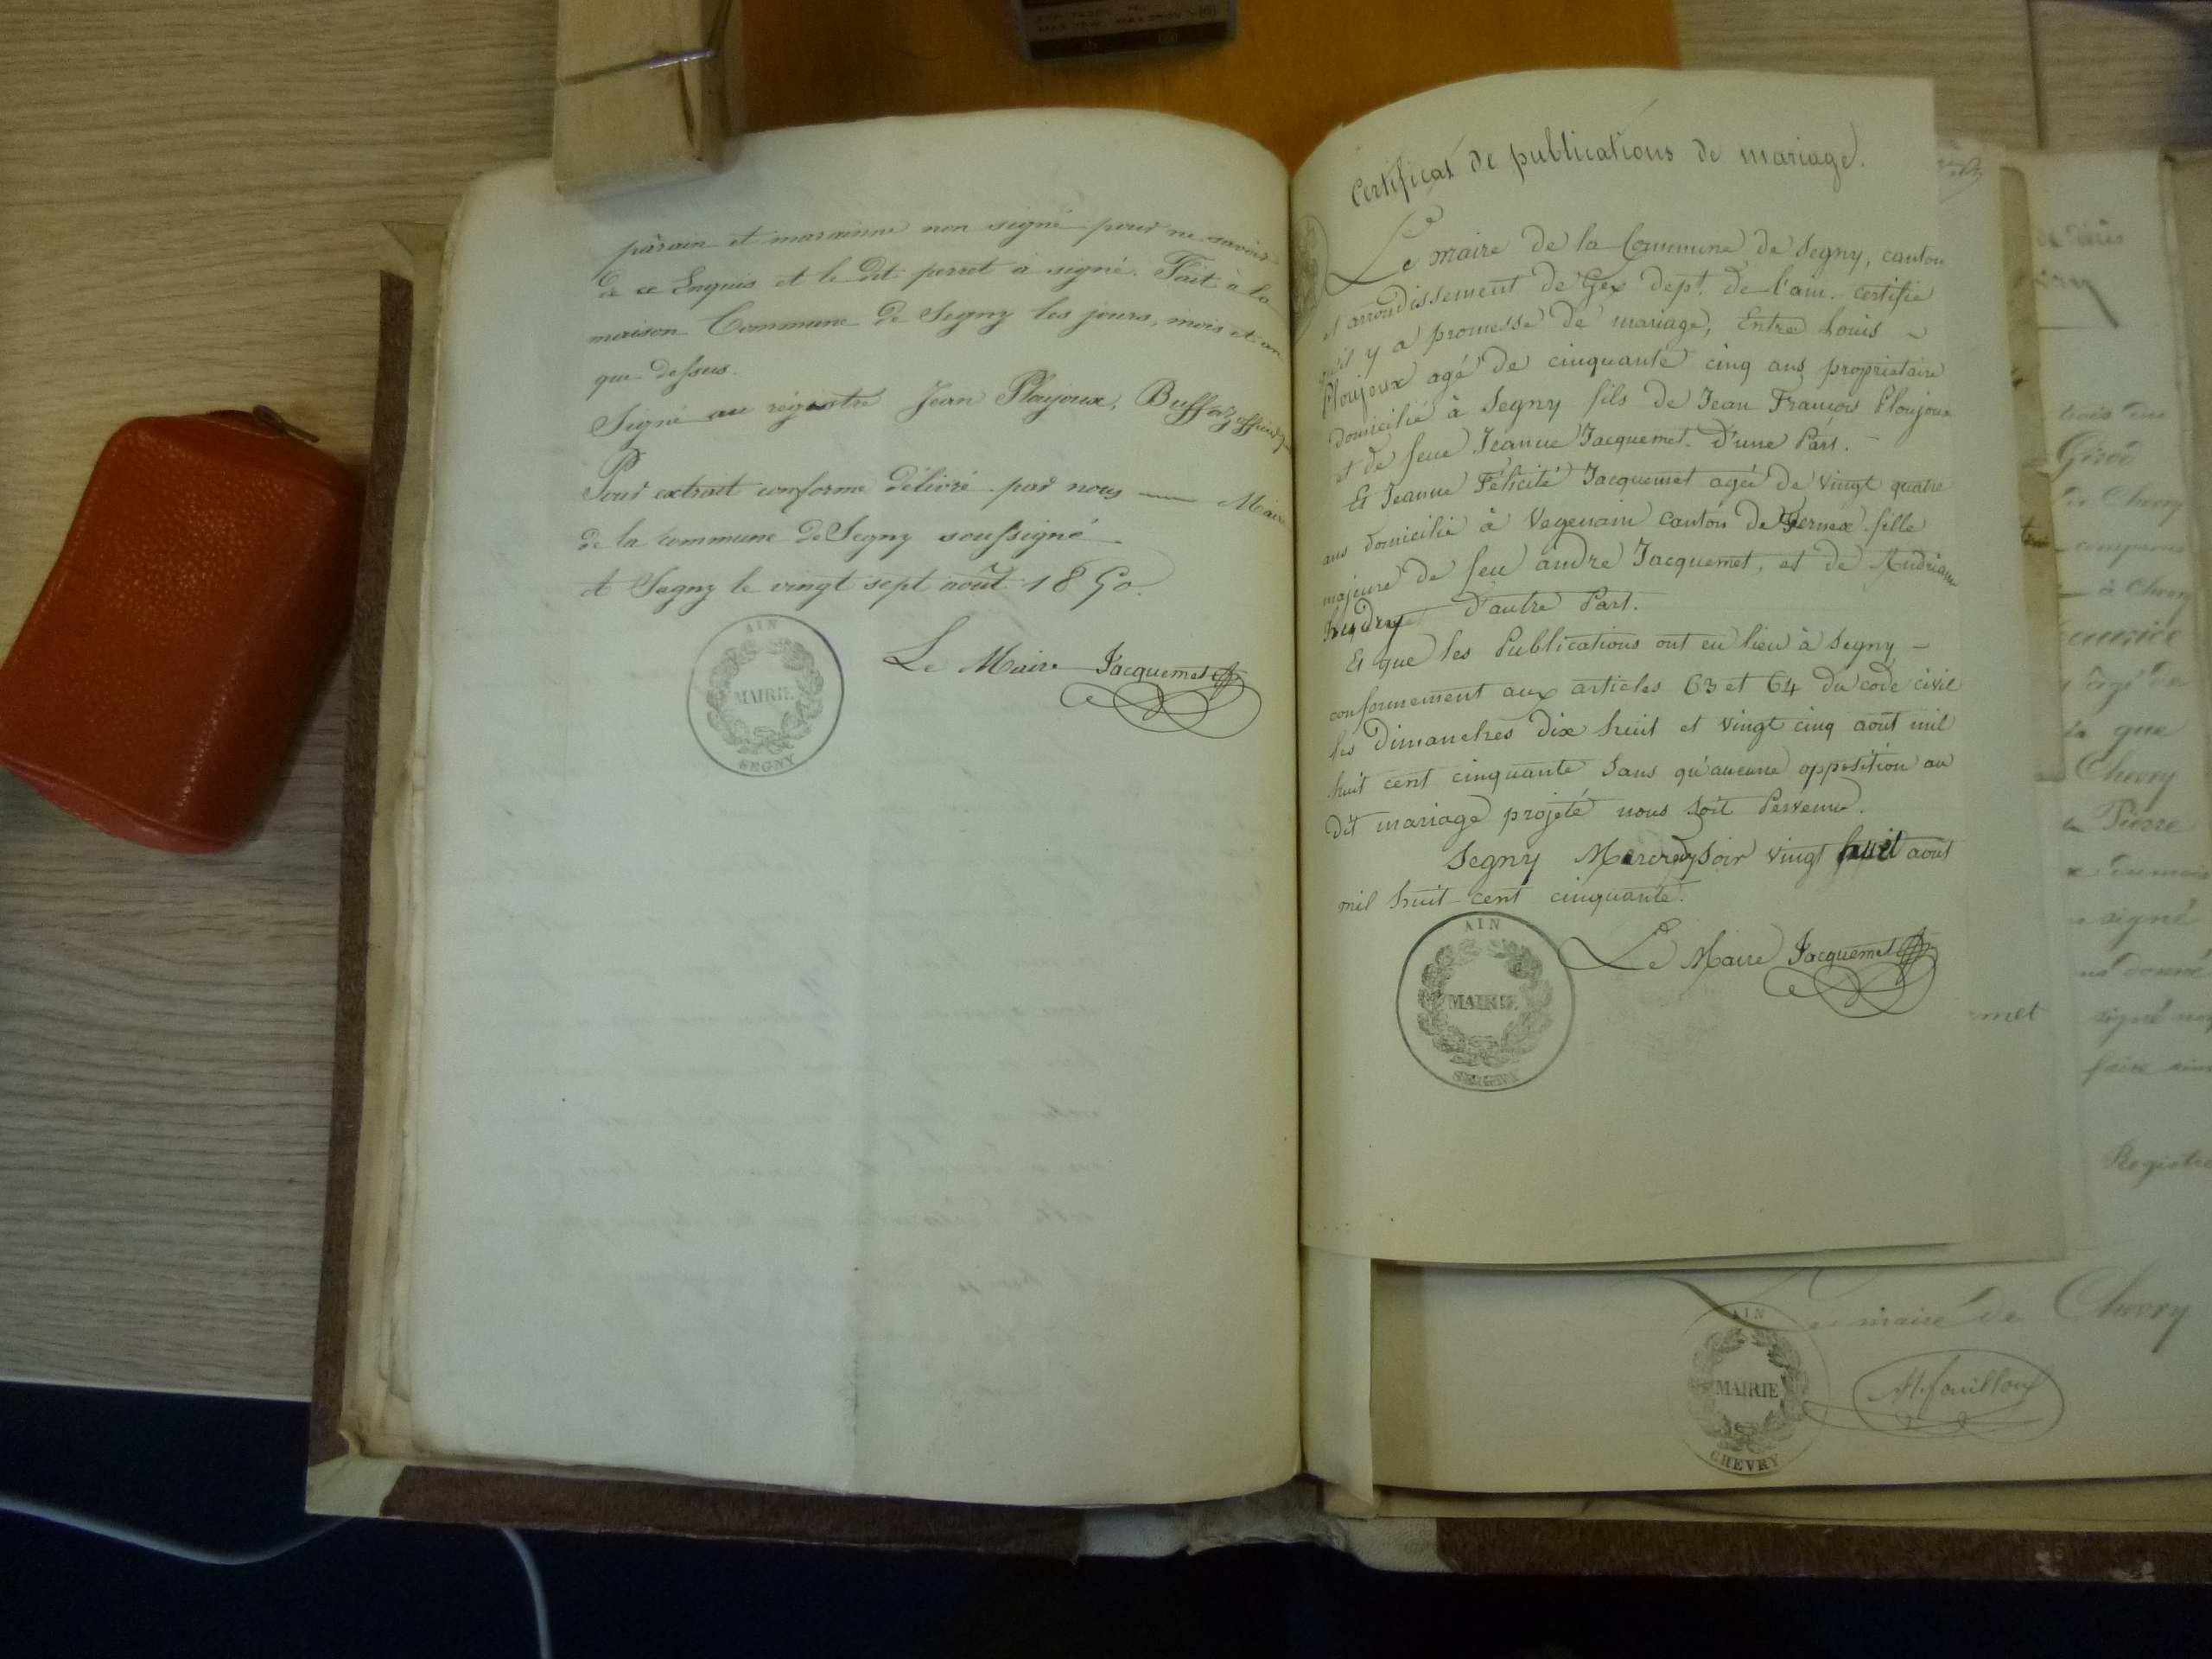 pârain et maraine non signé pour ne savoir
de ce Enquis et le dit perret à signé. Fait à la
maison Commune de Segny les jours, mois et an
que dessus.
Signé au régistre Jean Ploujoux, Buffaz
Pour extrait conforme délivré par nous Maire
de la commune de Segny soussigné
A Segny le vingt sept août 1850.
Le Maire Jacquemet
AIN
MAIRIE
SEGNY
Certificat de publications de mariage.
Le maire de la Commune de Segny, canton
et arrondissement de Gex dept. de l'ain. certifie
qu'il y a promesse de mariage, Entre Louis
Ploujoux agé de cinquante cinq ans propriétaire
domicilié à Segny fils de Jean François Ploujoux
et de feue Jeanne Jacquemet. D'une Part.
Et Jeanne Félicité Jacquemet agée de vingt quatre
ans domicilié à canton de Fernex fille
majeure de feu andre Jacquemet, et de
D'autre Part.
Et que les Publications ont eu lieu à Segny
conformement aux articles 63 et 64 du code civil
les dimanches dix huit et vingt cinq août mil
huit cent cinquante Sans qu'aucune opposition au
dit mariage projeté nous soit Parvenue.
Segny vingt huit août
mil huit cent cinquante.
Le Maire Jacquemet
AIN
MAIRIE
SEGNY
Girod
de Chevry
à Chevry
agé de
que
Chevry
Pierre
signé
met
faire
Registre
maire de Chevry
AIN
MAIRIE
CHEVRY